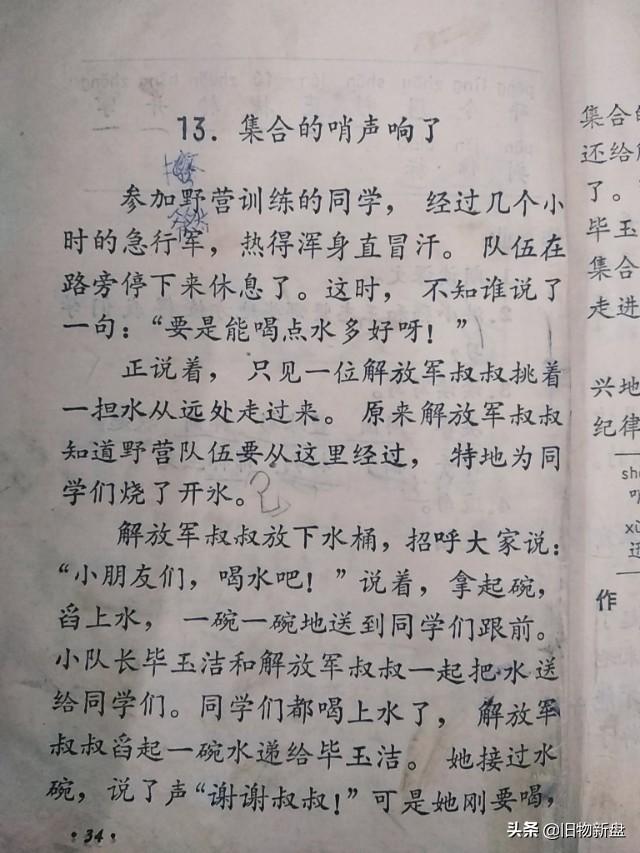 13. 集合的哨声响了
参加野营训练的同学， 经过几个小
时的急行军，热得浑身直冒汗。 队伍在
路旁停下来休息了。这时， 不知谁说了
一句：“要是能喝点水多好呀！”
正说着， 只见一位解放军叔叔挑着
一担水从远处走过来。 原来解放军叔叔
知道野营队伍要从这里经过， 特地为同
学们烧了开水。
解放军叔叔放下水桶，招呼大家说：
“小朋友们，喝水吧！”说着，拿起碗，
舀上水， 一碗一碗地送到同学们跟前。
小队长毕玉洁和解放军叔叔一起把水送
给同学们。同学们都喝上水了， 解放军
叔叔舀起一碗水递给毕玉洁。 她接过水
碗，说了声“谢谢叔叔！”可是她刚要喝，
·34·
集合的
还给
了。
毕玉
集合
走进
兴地
纪律
作
头条 @旧物新盘